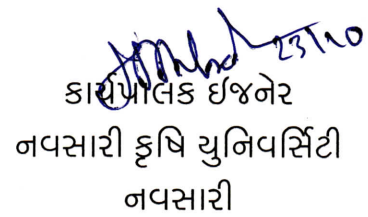 23/10
કાર્યપાલક ઇજનેર
નવસારી કૃષિ યુનિવર્સિટી
નવસારી